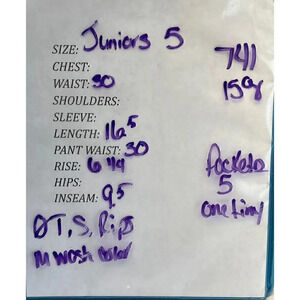 SIZE: Juniors 5
CHEST:
741
WAIST: 30
15oz
SHOULDERS:
SLEEVE:
LENGTH: 16.5
PANT WAIST: 30
RISE:
Pockets
HIPS:
5
INSEAM: 9.5
one tiny
T, S, Rips
M wash color